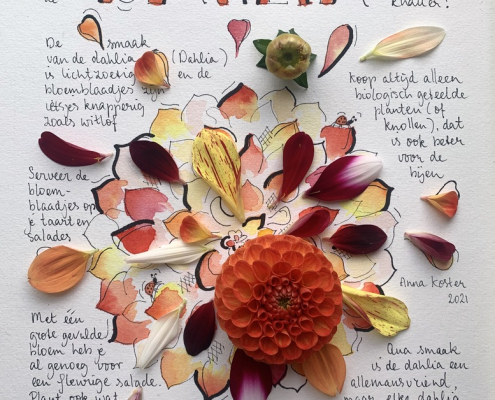 knaller!
De smaak
van de dahlia (Dahlia)
is lichtzoetig en de
bloemblaadjes zijn
ietsjes knapperig
zoals witlof
Koop altijd alleen
biologisch geteelde
planten (of
knollen), dat
is ook beter
voor de
bijen
Serveer de
bloem-
blaadjes op
je taart en
salades
Anna Koster
2021
Met één
grote gevulde
bloem heb je
al genoeg voor
een fleurige salade.
Plant ook wat
Qua smaak
is de dahlia een
allemansvriend,
maar elke dahlia